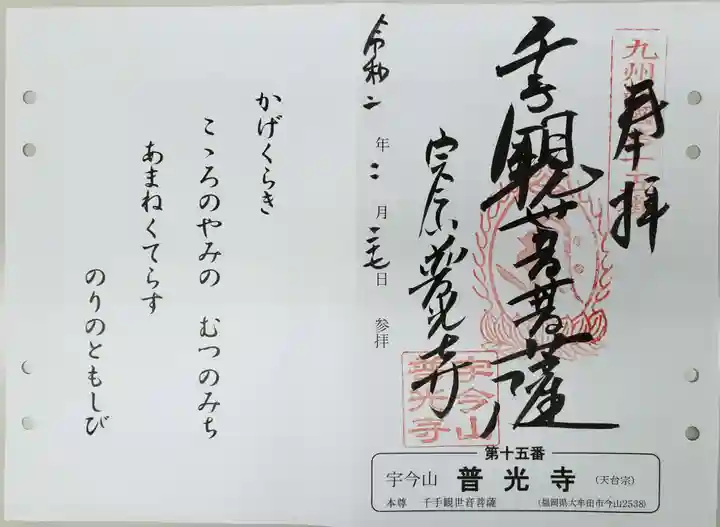 九州
奉拝
千手觀世音菩薩
普光寺
宇今山
普光寺
令和二年二月二十七日 参拝
かげくらき
こゝろのやみの むつのみち
あまねくてらす
のりのともしび
第十五番
宇今山 普光寺 (天台宗)
本尊 千手観世音菩薩 (福岡県大牟田市今山2538)